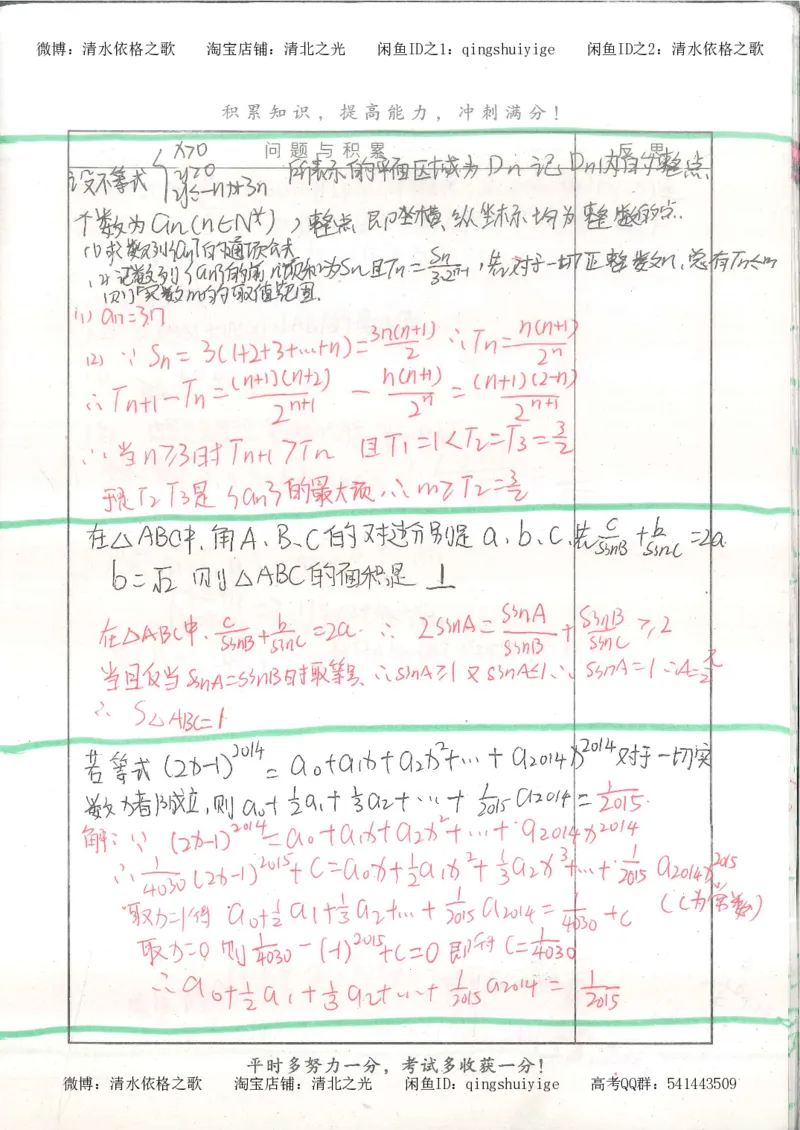 微博：清水依格之歌 淘宝店铺：清北之光 闲鱼ID之1：qingshuiyige 闲鱼ID之2：清水依格之歌
积累知识，提高能力，冲刺满分！
问题与积累
设不等式 { x>0 y>0 y≤-nx+3n 所表示的平面区域为Dn 记Dn内的整点
个数为an(n∈N*)，整点即坐横、纵坐标均为整数的点.
(1)求数列{an}的通项公式
(2)记数列{an}的前n项和为Sn且Tn=Sn/3·2^(n-1)，若对于一切正整数n，总有Tn≤m
则实数m的取值范围.
(1) an=3n
(2) ∵ Sn=3(1+2+3+…+n)=3n(n+1)/2 ∴Tn=n(n+1)/2^n
∴Tn+1-Tn=(n+1)(n+2)/2^(n+1) - n(n+1)/2^n = (n+1)(2-n)/2^(n+1)
∴当n≥3时Tn+1>Tn 且T1=1<T2=T3=3/2
于是T2 T3是{an}的最大项 ∴m≥T2=3/2
在△ABC中，角A、B、C的对边分别是a、b、c，若c/sinB+b/sinC=2a
b=√2 则△ABC的面积是 1
在△ABC中，c/sinB+b/sinC=2a ∴2sinA=sinA/sinB+sinB/sinC≥2
当且仅当sinA=sinB时取等号 ∴sinA≥1 又sinA≤1 ∴sinA=1 ∴A=π/2
∴ S△ABC=1
若等式(2x-1)^2014=a0+a1x+a2x^2+…+a2014x^2014对于一切实
数x都成立，则a0+1/2a1+1/3a2+…+1/2015a2014=1/2015.
解：∵(2x-1)^2014=a0+a1x+a2x^2+…+a2014x^2014
∴1/4030(2x-1)^2015+C=a0x+1/2a1x^2+1/3a2x^3+…+1/2015a2014x^2015
取x=1得 a0+1/2a1+1/3a2+…+1/2015a2014=1/4030+C (C为常数)
取x=0 则1/4030-(-1)^2015+C=0 即得C=1/4030
∴a0+1/2a1+1/3a2+…+1/2015a2014=1/2015
平时多努力一分，考试多收获一分！
微博：清水依格之歌 淘宝店铺：清北之光 闲鱼ID：qingshuiyige 高考QQ群：541443509